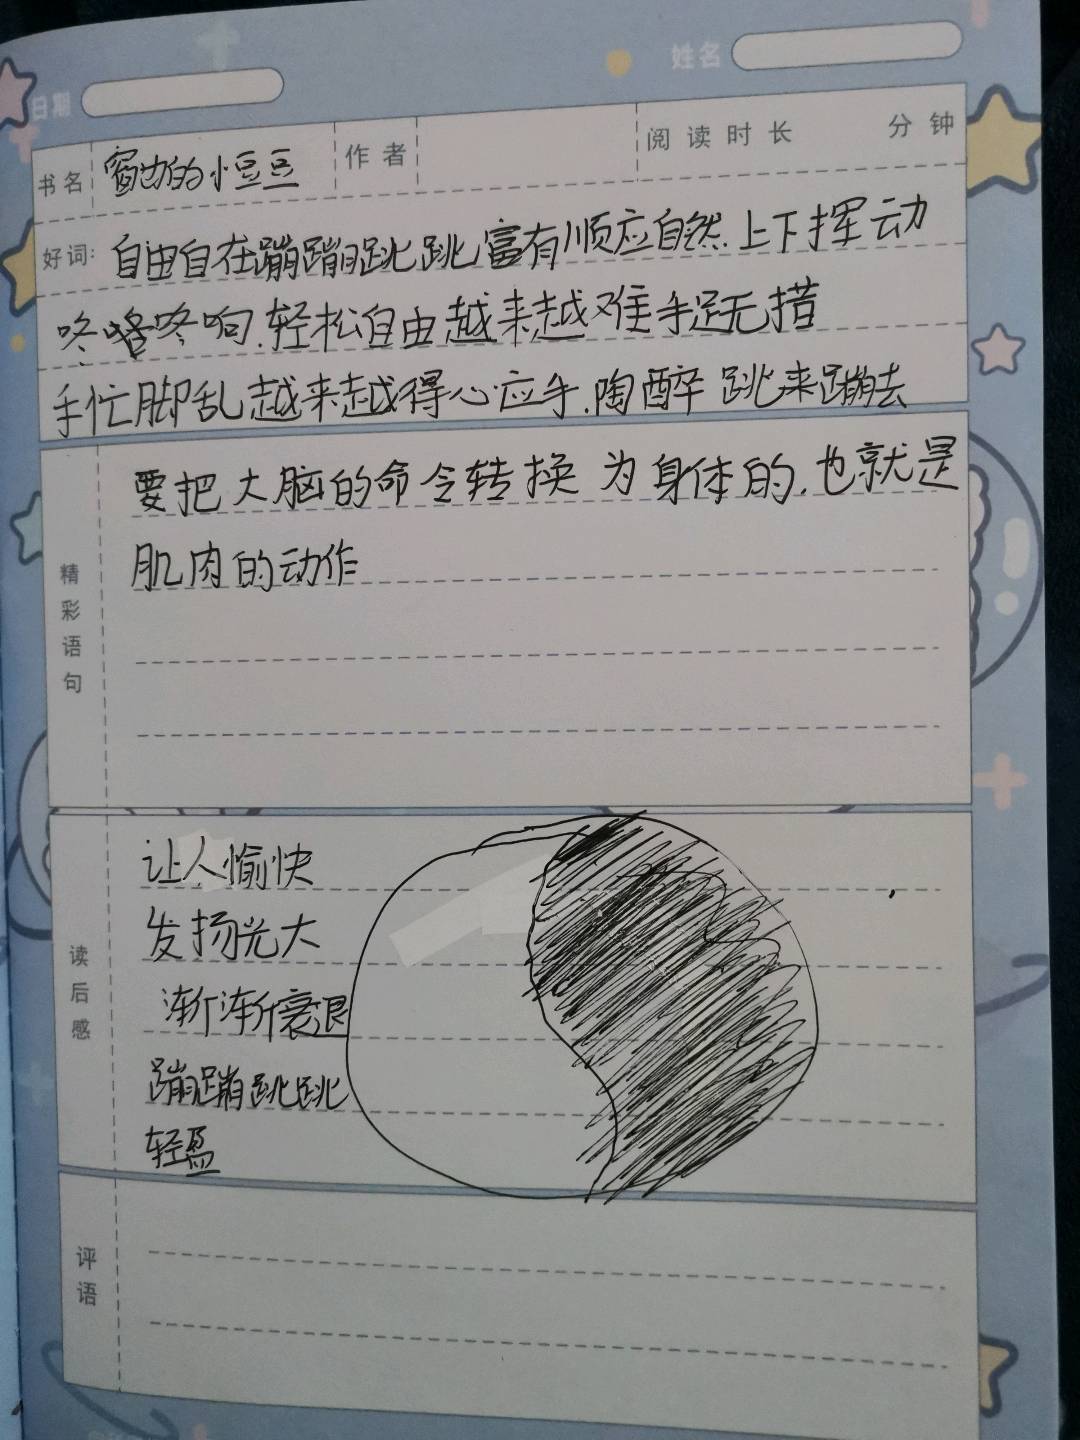 日期 姓名
书名 窗边的小豆豆 作者 阅读时长 分钟
好词: 自由自在蹦蹦跳跳富有顺应自然.上下挥动
咚咚咚响.轻松自由越来越难手足无措
手忙脚乱越来越得心应手.陶醉 跳来蹦去
精彩语句 要把大脑的命令转换为身体的.也就是
肌肉的动作
读后感 让人愉快
发扬光大
渐渐衰退
蹦蹦跳跳
轻盈
评语